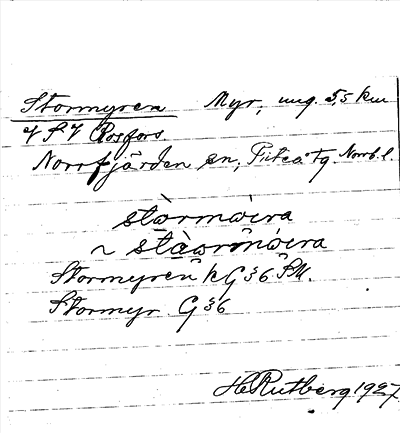 Stormyren Myr, ung. 5,5 km
V S V Rosfors
Norrfjärden sn, Piteå tg. Norrb. l.
stòrmòira
~ stàormóira
Stormyren kG 36 SM.
Stormyr G 36
H Rutberg 1927